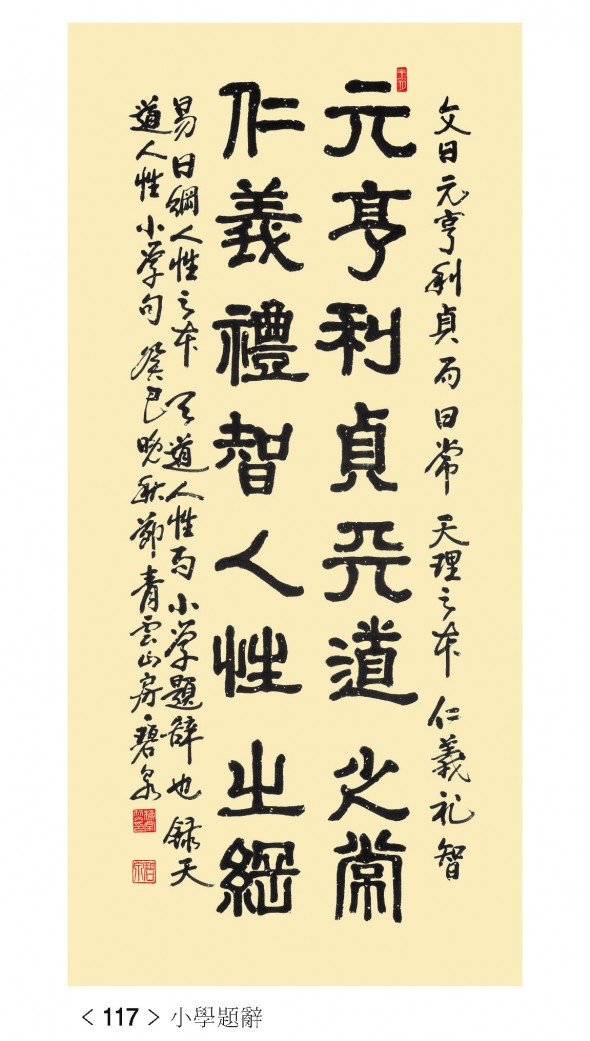 文曰元亨利貞而曰常 天理之本 仁義礼智
元亨利貞天道之常
仁義禮智人性之綱
易曰綱人性之本 天道人性而小学題辞也 録天
道人性小学句 癸巳晚秋節青雲山房 碧泉
< 117 > 小學題辭